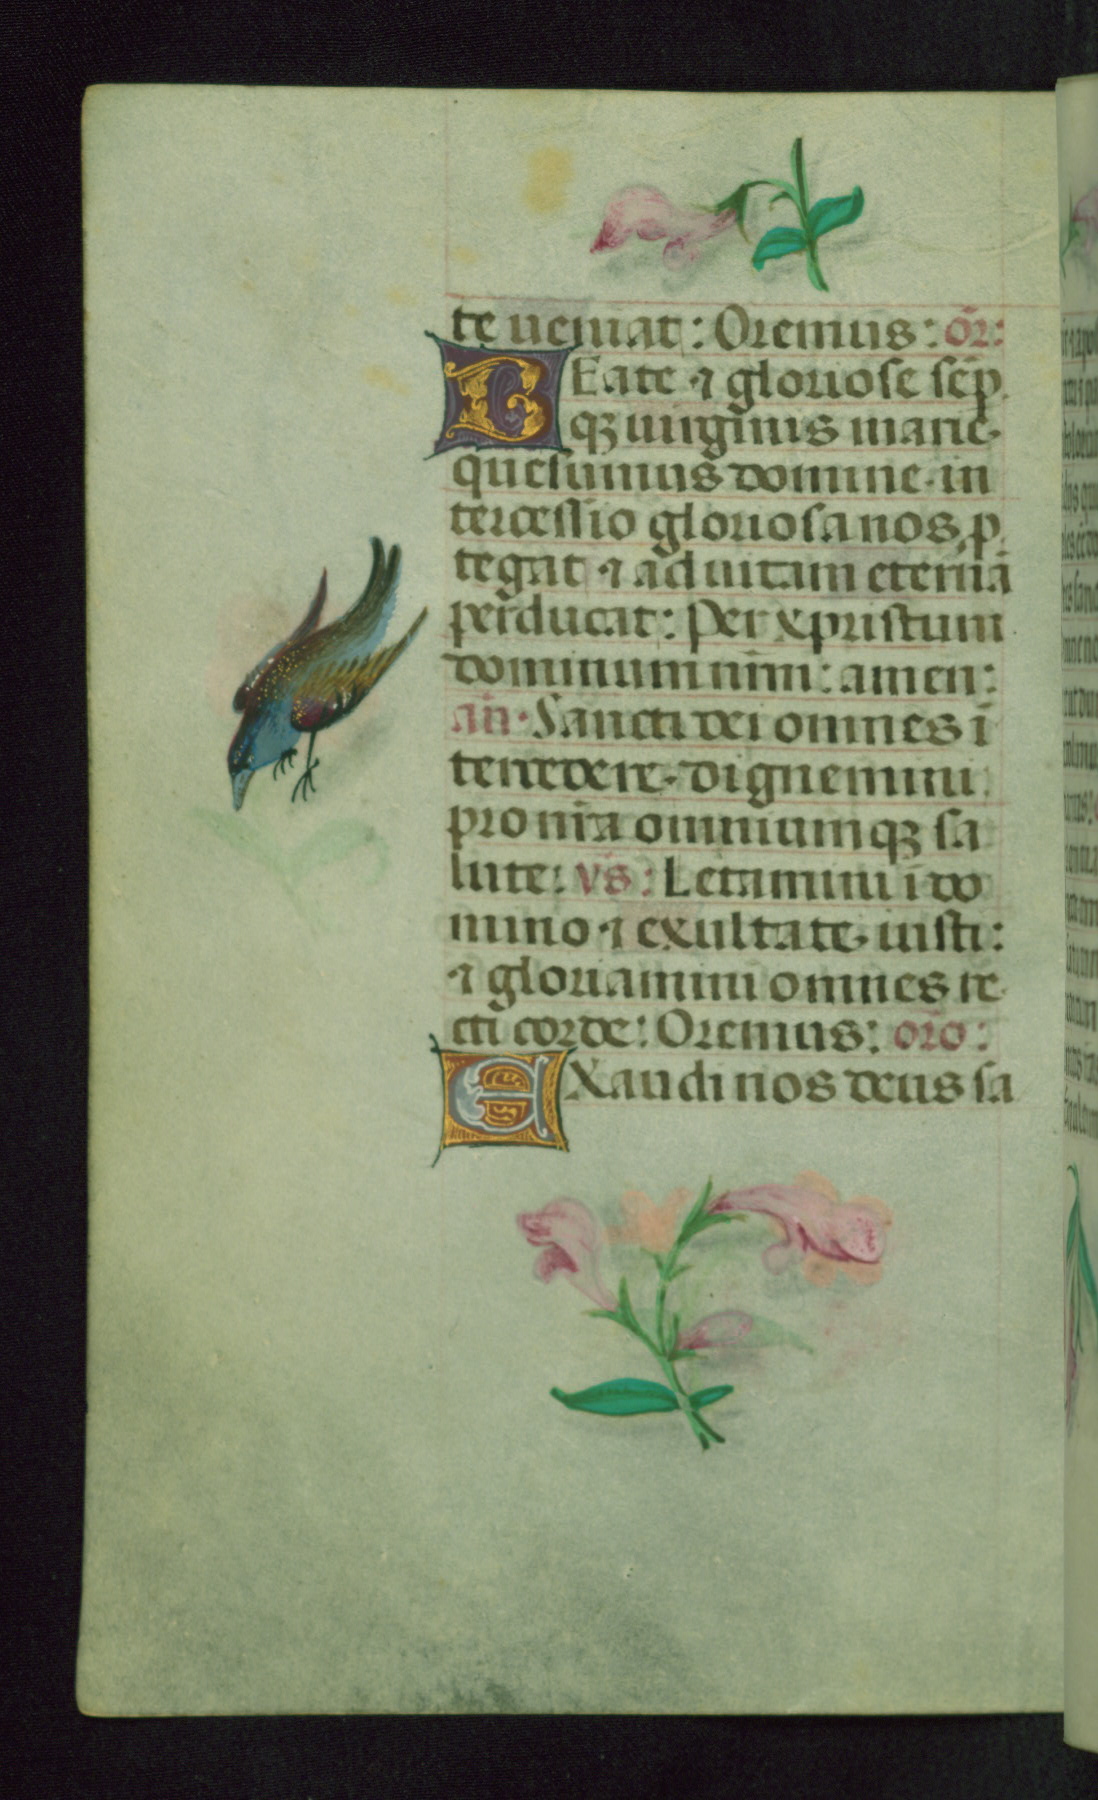 te ueniat: Oremus: or̄:
BEate ⁊ gloriose sēp
qꝫ uirginis marie·
quesumus domine· in
tercessio gloriosa nos p̱
tegat ⁊ ad uitam eternā
perducat: Per xpristum
dominum nr̄m: amen:
an̄· Sancti dei omnes ī
tercedere· dignemini
pro nr̄a omniumqꝫ sa
lute: vs̄: Letamini ī do
mino ⁊ exultate· iusti:
⁊ gloriamini omnes re
cti corde: Oremus: oro:
EXaudi nos deus sa